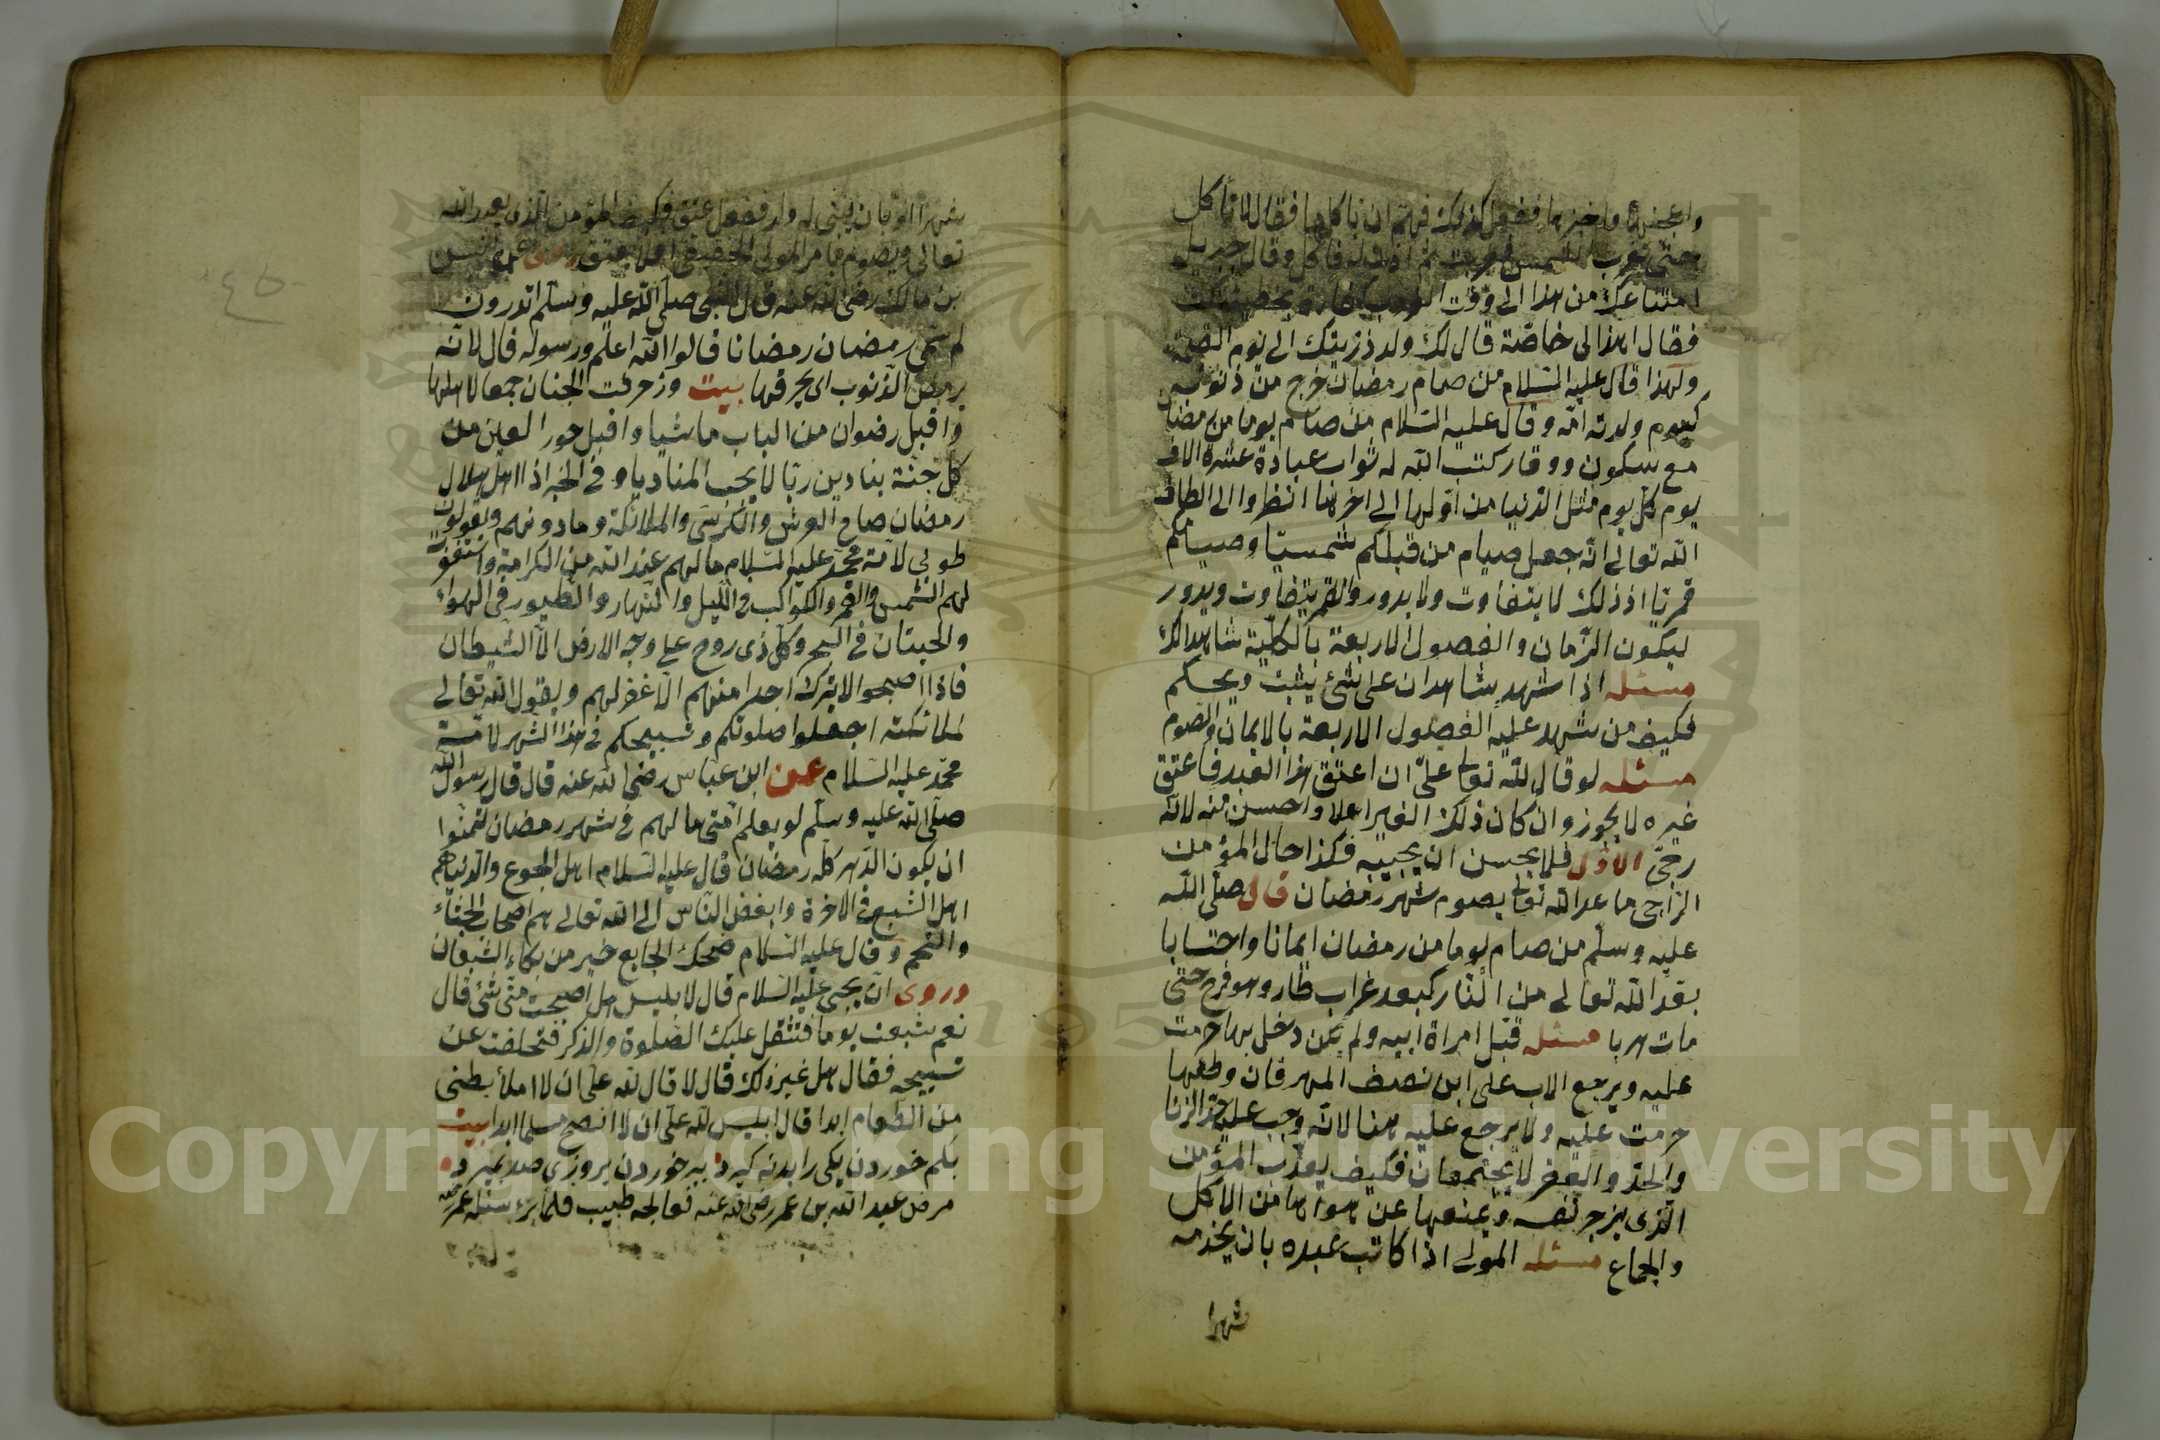 واعجنها واخبزها ففعل كذلك فهم ان يأكلها فقال لا تأكل
حتى تغرب الشمس فغربت ثم اذن له فاكل وقال جبريل
امتناعك من هذا الى وقت الغروب كفارة بخطيئتك
فقال اهذا لى خاصة قال لك ولذريتك الى يوم القيمة
ولهذا قال عليه السلام من صام رمضان خرج من ذنوبه
كيوم ولدته امه وقال عليه السلام من صام يوما من رمضان
مع سكون ووقار كتب الله له ثواب عبادة عشرة الاف
يوم كل يوم مثل الدنيا من اولها الى اخرها انظروا الى الطاف
الله تعالى انه جعل صيام من قبلكم شمسيا وصيامكم
قمريا اذ ذلك لا يتفاوت ولا يدور والقمر يتفاوت ويدور
ليكون الزمان والفصول الاربعة بالكلية شاهدا لك
مسئله اذا شهد شاهدان على شئ يثبت ويحكم
فكيف من شهد عليه الفصول الاربعة بالايمان والصوم
مسئله لو قال لله تعالى علىّ ان اعتق هذا العبد فاعتق
غيره لا يجوز وان كان ذلك الغير اعلا واحسن منه لانه
رجىّ الاول فلا يحسن ان يخيبه فكذا حال المؤمن
الراجى ما عد الله تعالى بصوم شهر رمضان قال صلى الله
عليه وسلم من صام يوما من رمضان ايمانا واحتسابا
بعد الله تعالى من النار كبعد غراب طار وهو فرخ حتى
مات هربا مسئله قبل امراة ابيه ولم يكن دخل بها حرمت
عليه ويرجع الاب على ابن نصف المهر فان وطئها
حرمت عليه ولا يرجع عليه هنا لانه وجب عليه حد الزنا
والحد والعقر لا يجتمعان فكيف يعذب المؤمن
الذى يزجر نفسه ويمنعها عن هواها من الاكل
والجماع مسئله المولى اذا كاتب عبده بان يخدمه
شهرا
شهرا او بان يبنى له دار ففعل عتق فكيف المؤمن الذى يعبد الله
تعالى ويصوم بامر المولى الحقيقى افلا يعتق عن انس
بن مالك رضى الله عنه قال النبى صلى الله عليه وسلم اتدرون
لم سمى رمضان رمضانا قالوا الله اعلم ورسوله قال لانه
يرمض الذنوب اى يحرقها بيت وزحرفت الجنان جمعا لاهلها
واقبل رضوان من الباب ماشيا واقبل حور العين من
كل جنة ينادين ربا لا يخب المناديا وفى الخبر اذا اهل هلال
رمضان صاح العرش والكرسى والملائكة وما دونهم ويقولون
طوبى لامة محمد عليه السلام ما لهم عند الله من الكرامة واستغفر
لهم الشمس والقمر والكواكب فى الليل والنهار والطيور فى الهواء
والحيتان فى البحر وكل ذى روح على وجه الارض الا الشيطان
فاذا اصبحوا لا يترك احدا منهم الا غفر لهم ويقول الله تعالى
لملائكته اجعلوا صلوتكم وتسبيحكم فى هذا الشهر لامة
محمد عليه السلام عن ابن عباس رضى الله عنه قال قال رسول الله
صلى الله عليه وسلم لو يعلم امتى ما لهم فى شهر رمضان لتمنوا
ان يكون الدهر كله رمضان قال عليه السلام اهل الجوع والدنيا هم
اهل الشبع فى الاخرة وابغض الناس الى الله تعالى هم اصحاب الجثاء
والتخم وقال عليه السلام ضحك الجايع خير من بكاء الشبعان
وروى ان يحيى عليه السلام قال لابليس هل اصبحت منى شئ قال
نعم شبعت يوما فتثقل عليك الصلوة والذكر فتخلفت عن
تسبيحه فقال هل غير ذلك قال لا قال لله علىّ ان لا املأ بطنى
من الطعام ابدا قال ابليس لله علىّ ان لا انصح مسلما ابدا بيت
بكم خوردن يكى را بدنه كيرد بپر خوردن بروزى صد بميرد
مرض عبد الله بن عمر رضى الله عنه فعالجه طبيب فلما برء سئله عمر